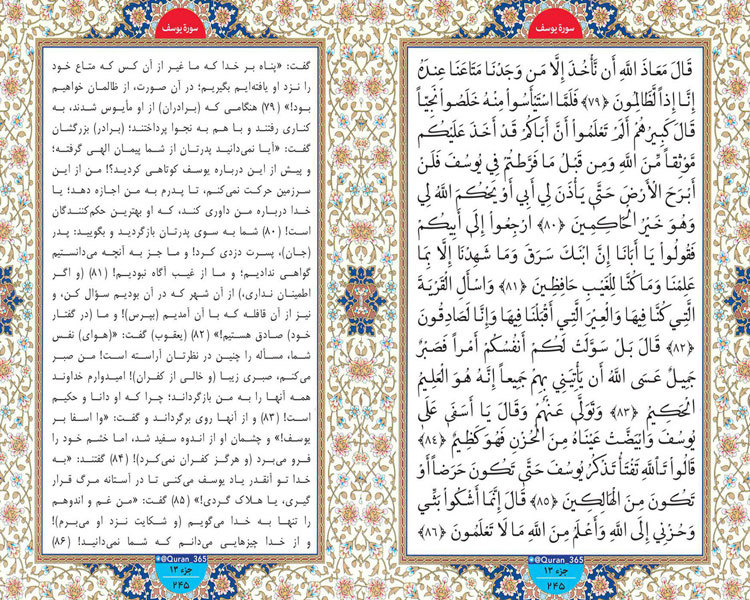 سورهٔ یوسف
قَالَ مَعَاذَ اللَّهِ أَن نَّأْخُذَ إِلَّا مَن وَجَدْنَا مَتَاعَنَا عِندَهُ
إِنَّا إِذاً لَّظَالِمُونَ ﴿۷۹﴾ فَلَمَّا اسْتَيْأَسُواْ مِنْهُ خَلَصُواْ نَجِيّاً
قَالَ كَبِيرُهُمْ أَلَمْ تَعْلَمُواْ أَنَّ أَبَاكُمْ قَدْ أَخَذَ عَلَيْكُم
مَّوْثِقاً مِّنَ اللَّهِ وَمِن قَبْلُ مَا فَرَّطتُمْ فِي يُوسُفَ فَلَنْ
أَبْرَحَ الْأَرْضَ حَتَّىَ يَأْذَنَ لِي أَبِي أَوْ يَحْكُمَ اللَّهُ لِي
وَهُوَ خَيْرُ الْحَاكِمِينَ ﴿۸۰﴾ ارْجِعُواْ إِلَى أَبِيكُمْ
فَقُولُواْ يَا أَبَانَا إِنَّ ابْنَكَ سَرَقَ وَمَا شَهِدْنَا إِلَّا بِمَا
عَلِمْنَا وَمَا كُنَّا لِلْغَيْبِ حَافِظِينَ ﴿۸۱﴾ وَاسْأَلِ الْقَرْيَةَ
الَّتِي كُنَّا فِيهَا وَالْعِيْرَ الَّتِي أَقْبَلْنَا فِيهَا وَإِنَّا لَصَادِقُونَ
﴿۸۲﴾ قَالَ بَلْ سَوَّلَتْ لَكُمْ أَنفُسُكُمْ أَمْراً فَصَبْرٌ
جَمِيلٌ عَسَى اللَّهُ أَن يَأْتِيَنِي بِهِمْ جَمِيعاً إِنَّهُ هُوَ الْعَلِيمُ
الْحَكِيمُ ﴿۸۳﴾ وَتَوَلَّى عَنْهُمْ وَقَالَ يَا أَسَفَى عَلَى
يُوسُفَ وَابْيَضَّتْ عَيْنَاهُ مِنَ الْحُزْنِ فَهُوَ كَظِيمٌ ﴿۸۴﴾
قَالُواْ تَاللَّهِ تَفْتَأُ تَذْكُرُ يُوسُفَ حَتَّى تَكُونَ حَرَضاً أَوْ
تَكُونَ مِنَ الْهَالِكِينَ ﴿۸۵﴾ قَالَ إِنَّمَا أَشْكُواْ بَثِّي
وَحُزْنِي إِلَى اللَّهِ وَأَعْلَمُ مِنَ اللَّهِ مَا لَا تَعْلَمُونَ ﴿۸۶﴾
@Quran_365
جزء ۱۳
۲۴۵
سورهٔ یوسف
گفت: «پناه بر خدا که ما غیر از آن کس که متاع خود
را نزد او یافته‌ایم بگیریم؛ در آن صورت، از ظالمان خواهیم
بود!» (۷۹) هنگامی که (برادران) از او مأیوس شدند، به
کناری رفتند و با هم به نجوا پرداختند؛ (برادر) بزرگشان
گفت: «آیا نمی‌دانید پدرتان از شما پیمان الهی گرفته؛
و پیش از این درباره یوسف کوتاهی کردید؟! من از این
سرزمین حرکت نمی‌کنم، تا پدرم به من اجازه دهد؛ یا
خدا درباره من داوری کند، که او بهترین حکم‌کنندگان
است! (۸۰) شما به سوی پدرتان بازگردید و بگویید: پدر
(جان)، پسرت دزدی کرد! و ما جز به آنچه می‌دانستیم
گواهی ندادیم؛ و ما از غیب آگاه نبودیم! (۸۱) (و اگر
اطمینان نداری،) از آن شهر که در آن بودیم سؤال کن، و
نیز از آن قافله که با آن آمدیم (بپرس)! و ما (در گفتار
خود) صادق هستیم!» (۸۲) (یعقوب) گفت: «(هوای) نفس
شما، مسأله را چنین در نظرتان آراسته است! من صبر
می‌کنم، صبری زیبا (و خالی از کفران)! امیدوارم خداوند
همه آنها را به من بازگرداند؛ چرا که او دانا و حکیم
است! (۸۳) و از آنها روی برگرداند و گفت: «وا اسفا بر
یوسف!» و چشمان او از اندوه سفید شد، اما خشم خود را
فرو می‌برد (و هرگز کفران نمی‌کرد)! (۸۴) گفتند: «به
خدا تو آنقدر یاد یوسف می‌کنی تا در آستانه مرگ قرار
گیری، یا هلاک گردی!» (۸۵) گفت: «من غم و اندوهم
را تنها به خدا می‌گویم (و شکایت نزد او می‌برم)!
و از خدا چیزهایی می‌دانم که شما نمی‌دانید! (۸۶)
@Quran_365
جزء ۱۳
۲۴۵